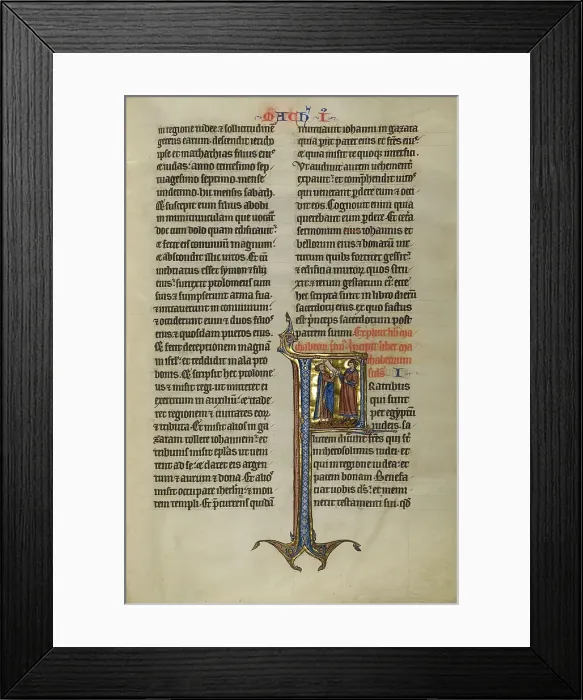 MACH I
in regione iudee & sollicitudinē
gerens earum. descendit iericho
ipse et mathathias filius eiꝰ
& iudas. anno centesimo sep
tuagesimo septimo. mense
undecimo. hic mensis sabath.
Et suscepit eum filius abobi
in munitiunculam que uocat᷑
doc cum dolo quam edificauit.
& fecit eis conuiuiū magnum.
& abscondit illic uiros. Et cū
inebriatus esset symon & filij
eius. surrexit ptolomeus cum
suis & sumpserunt arma sua.
& intrauerunt in conuiuium.
& occiderunt eum & duos filioˢ
eius. & quosdam pueros eius.
Et fecit deceptionem magnā
in isrl̄. et reddidit mala pro
bonis. Et scripsit hec ptolome
us & misit regi. ut mitteret ei
exercitum in auxiliū. & trade
ret regionem & ciuitates eoꝝ
& tributa. Et misit alios in ga
zaram tollere iohannem. et
tribunis misit ep̄las ut ueni
rent ad se. & daret eis argen
tum & aurum & dona. Et alioˢ
misit occupare iherl̄m. & mon
tem templi. Et p̄currens quidā
nunciauit iohanni in gazara
quia periit pater eius et fr̄es eiꝰ
& quia misit te quoq; interfici.
Ut audiuit autem uehement̄
expauit. et comp̄hendit uiroˢ
qui uenerant p̄dere eum & occi
dit eos. Cognouit enim quia
querebant eum p̄dere. Et cetā
sermonum eius iohannis et
bellorum eius & bonarū uir
tutum quibꝰ fortiter gessit.
& edificii muroꝝ quos stru
xit. & rerum gestarum eiꝰ. ecce
hec scripta sunt in libro dierū
sacerdotij eius. ex quo factus
est p̄nceps sacerdotum post
patrem suum. Explicit lib̄ ma
chabeoꝝ pmꝰ. Incipit liber ma
chabeorum
scd̄s. I
Fratribus
qui sunt
per egyptū
iudeis. sa
lutem dicunt fr̄es qui st̄
in iherosolimis iudei. et
qui in regione iudea. et
pacem bonam. Benefa
ciat uobis d̄s. et memi
nerit testamenti sui. qd̄